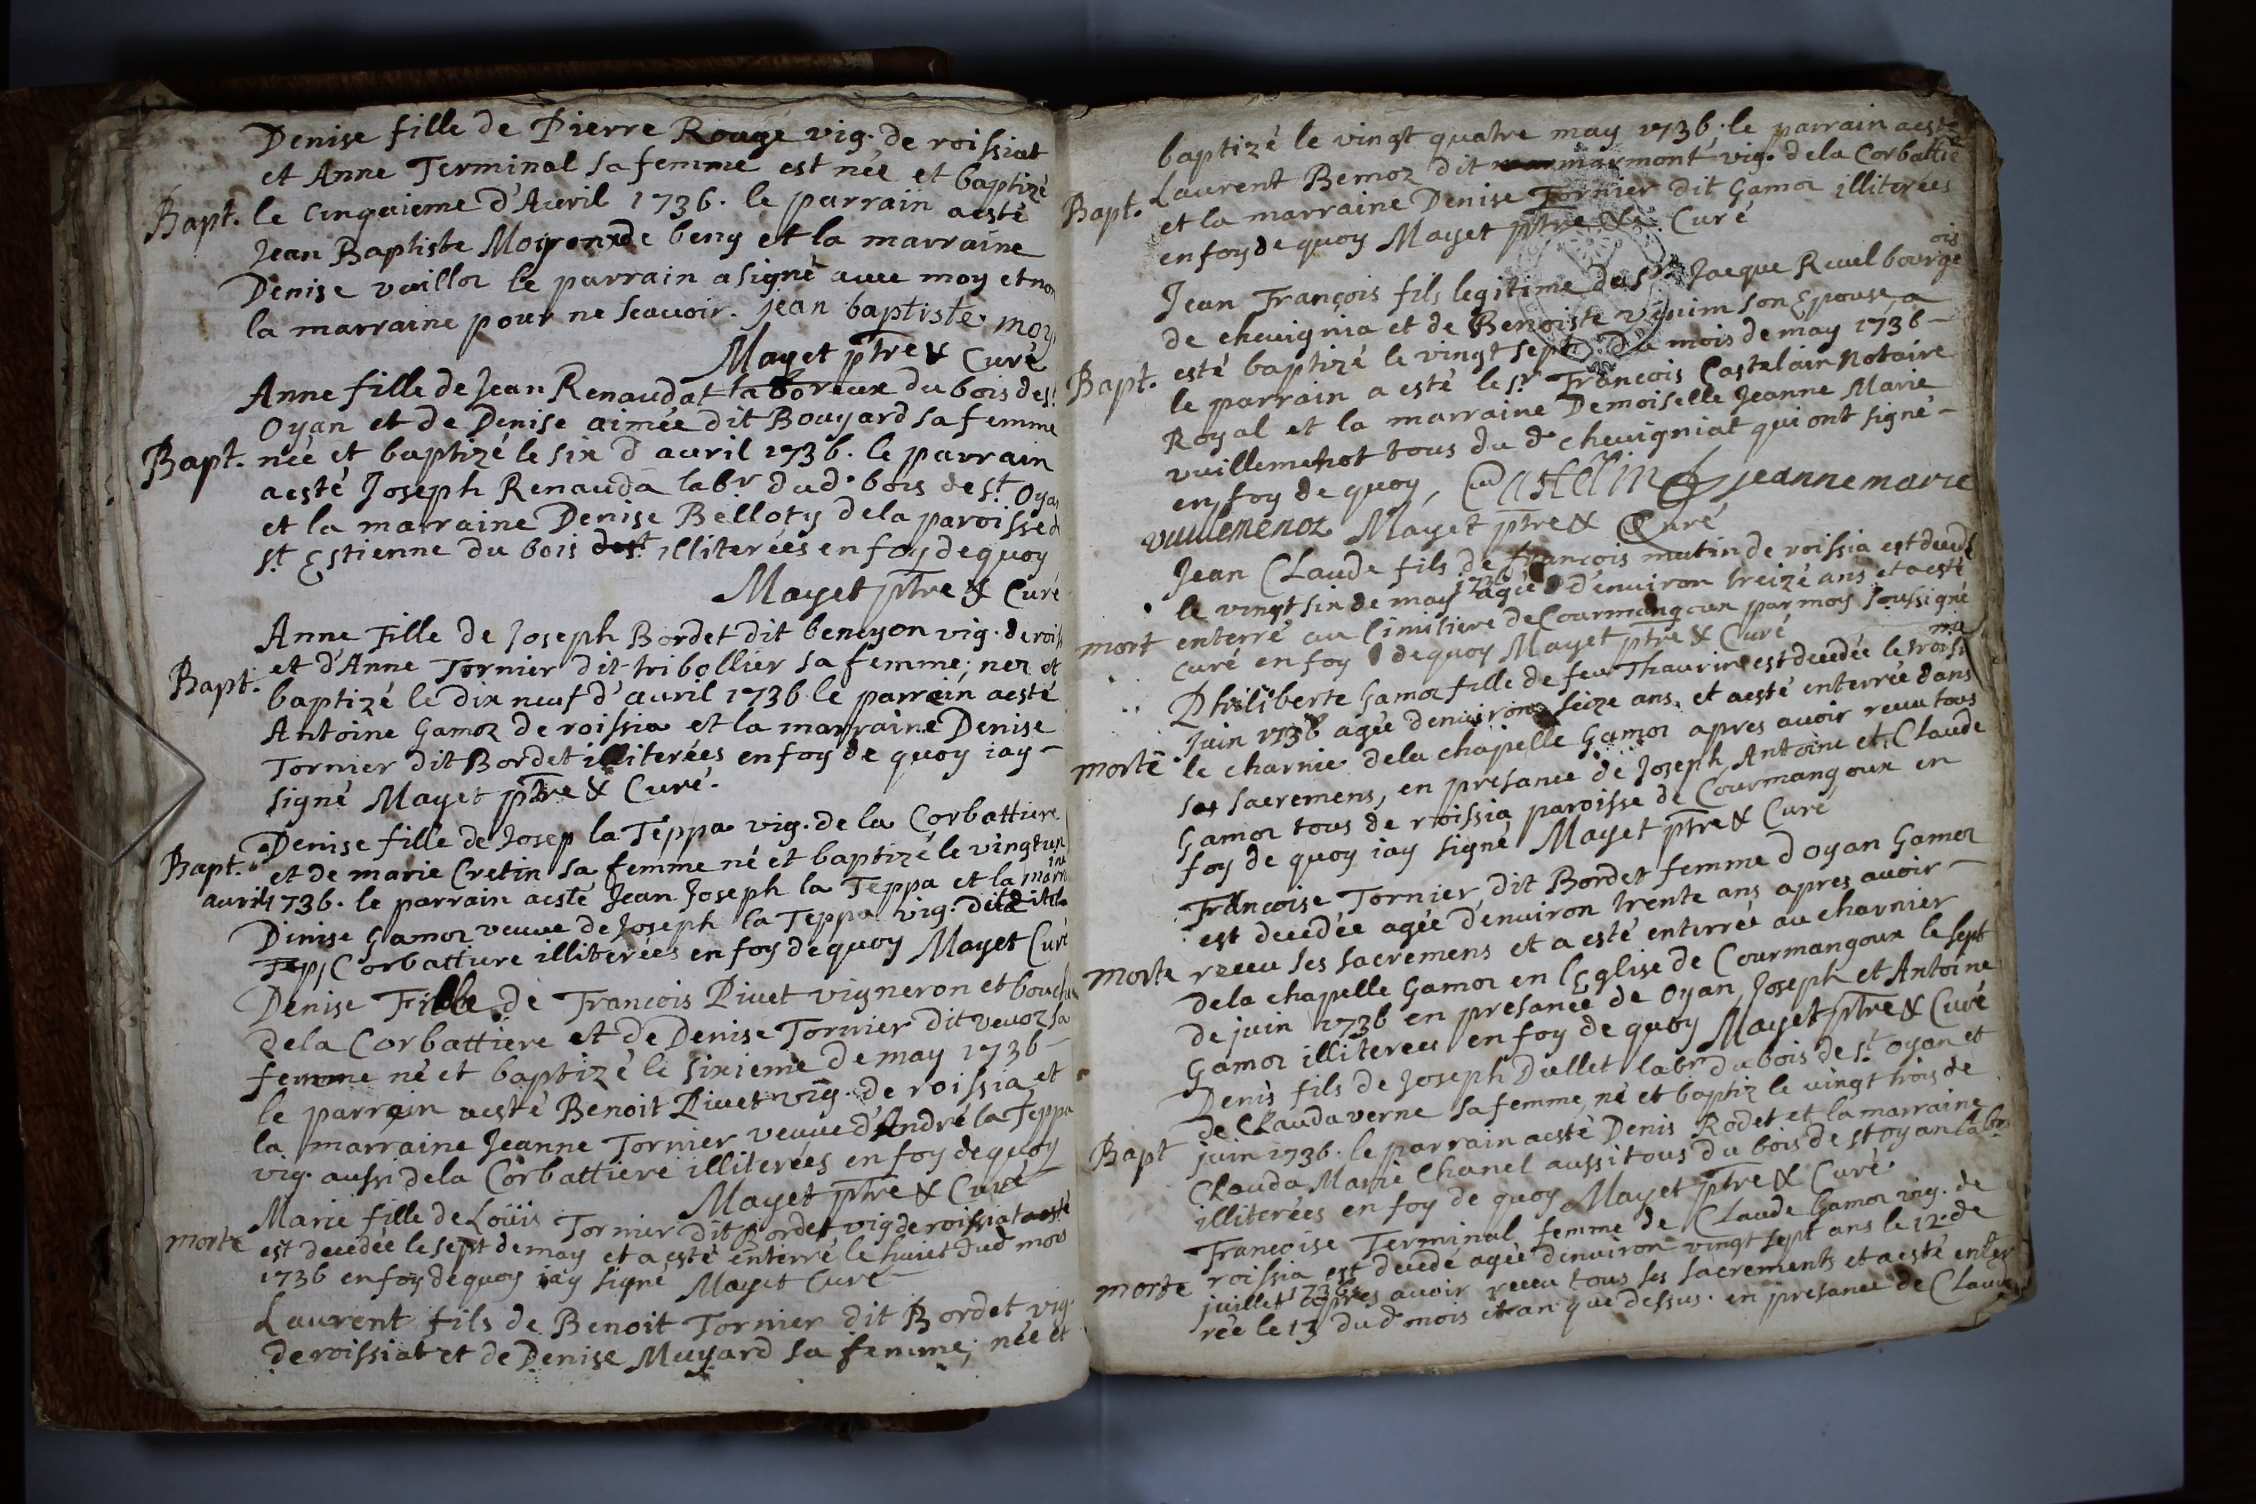 Denise fille de Pierre Rouge vig. de roissiat
et Anne Terminal sa femme est née et baptizé
Bapt. le cinquieme d'Avril 1736. le parrain aesté
Jean Baptiste Moyronx de beny et la marraine
Denise vuilloz le parrain a signé avec moy et non
la marraine pour ne scavoir. jean baptiste moy
Mayet ptre & Curé
Anne fille de Jean Renaudat laboreux du bois de st
Oyan et de Denise aimée dit Bouyard sa femme
Bapt. née et baptizé le six d'avril 1736. le parrain
aesté Joseph Renauda labr dud. bois de st. Oyan
et la marraine Denise Belloty dela paroisse d
st Estienne du bois illiterées en foy de quoy
Mayet ptre & Curé
Anne Fille de Joseph Bordet dit bencyon vig. de roiss
et d'Anne Tornier dit tribollier sa femme, nez et
Bapt. baptizé le dix neuf d'avril 1736 le parrein aesté
Antoine Gamoz de roissia et la marraine Denise
Tornier dit Bordet illiterées en foy de quoy iay
signé Mayet ptre & Curé.
Denise fille de Josep la Teppa vig. de la Corbattiere
Bapt. et de marie Cretin sa femme né et baptizé le vingt un
avril 1736. le parrain aesté Jean Joseph la Teppa et la marraine
Denise Gamoz veuve de Joseph la Teppa vig. dit
Corbattiere illiterées en foy de quoy Mayet Curé
Denise Fille de Francois Pivet vigneron et bouch
dela Corbattiere et de Denise Tornier dit vevoz sa
femme né et baptizé le sixieme de may 1736
le parrain aesté Benoit Pivet vig. de roissia et
la marraine Jeanne Tornier veuve d'André la Teppa
vig. aussi dela Corbattiere illiterées en foy de quoy
Mayet ptre & Curé
Marie fille de Loüis Tornier dit Bordet vig de roissiat aesté
morte est decedée le sept de may et a esté enterré le huict dud mois
1736 en foy de quoy iay signé Mayet Curé
Laurent fils de Benoit Tornier dit Bordet vig.
de roissiat et de Denise Muyard sa femme, née et
baptizé le vingt quatre may 1736. le parrain aesté
Laurent Bemoz dit marmont vig. dela Corbattie
Bapt. et la marraine Denise Tornier dit Gamoz illiterées
en foy de quoy Mayet ptre & Curé
Jean François fils legitime du sr. Jacque Revel bourgeois
de chevignia et de Benoiste vicuim son Epouse a
Bapt. esté baptizé le vingt sept du mois de may 1736
le parrain a esté le sr. Francois Castelain Notaire
Royal et la marraine Demoiselle Jeanne Marie
vuillemenot tous du d. chevigniat qui ont signé
en foy de quoy, Castelin jeanne marie
vuillemenoz Mayet ptre & Curé
Jean Claude fils de francois matin de roissia est decedé
le vingt six de may 1736 agée d'environ treize ans et aesté
mort enterré au cimitiere de Courmangoux par moy soussigné
curé en foy de quoy Mayet ptre & Curé
Philiberte Gamoz fille de feu Thaurin est decedée le troisime
juin 1736 agée denviron seize ans. et aesté enterrée dans
morte le charnie dela chapelle Gamoz apres avoir receu tous
ses sacremens, en presance de Joseph Antoine et Claude
Gamoz tous de roissia paroisse de Courmangoux en
foy de quoy iay signé Mayet ptre & Curé
Francoise Tornier dit Bordet femme d'Oyan Gamoz
est decedée agée d'environ trente ans apres avoir
morte receu ses sacremens et a esté enterrée au charnier
dela chapelle Gamoz en l'Eglise de Courmangoux le sept
de juin 1736 en presance de Oyan, Joseph et Antoine
Gamoz illiterees en foy de quoy Mayet ptre & Curé
Denis fils de Joseph Dullet labr du bois de st Oyan et
de Clauda verne sa femme, né et baptiz le vingt trois de
Bapt juin 1736. le parrain aesté Denis Rodet et la marraine
Clauda Marie Chanel aussi tous du bois de st oyan labrs
illiterées en foy de quoy Mayet ptre & Curé.
Francoise Terminal femme de Claude Gamoz vig. de
roissia est decedé agée denviron vingt sept ans le 12. de
morte juillet 1736 apres avoir receu tous ses sacrements et aesté enter
rée le 13 du d. mois et an que dessus. en presance de Claude